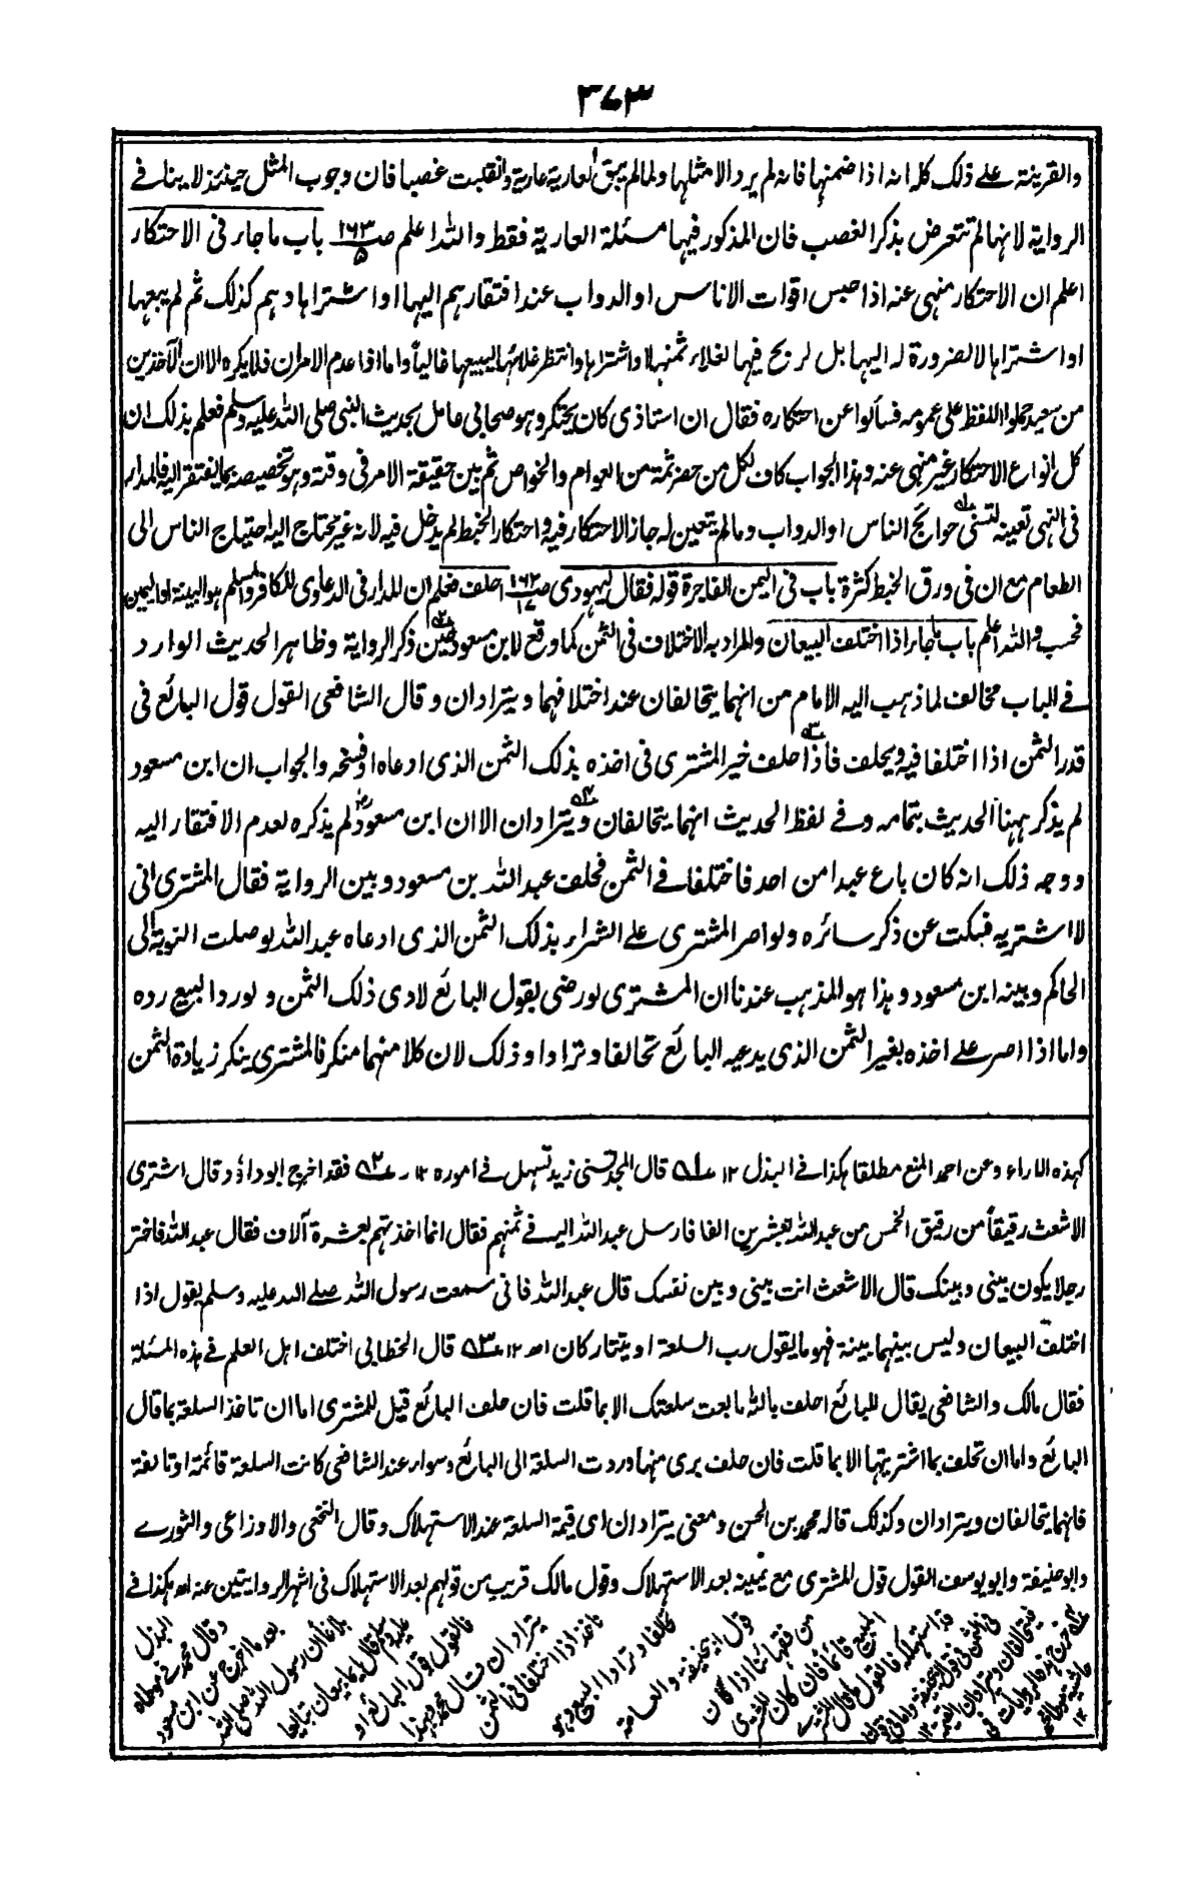 ۳۷۳
والقرینة علے ذلک کلہ انہ اذا ضمنہا فانہ لم یرد الا مثلہا ولما لم یبق العاریة عاریة وانقلبت غصبا فان وجوب المثل حینئذ لا ینافے
الروایة لانہا لم تتعرض بذکر الغصب فان المذکور فیہا مسئلة العاریة فقط واللہ اعلم صـ۱۶۳ ۵ باب ما جاء فی الاحتکار
اعلم ان الاحتکار منہی عنہ اذا حبس اقوات الاناس او الدواب عند افتقارہم الیہا او اشتراہا وہم کذلک ثم لم یبعہا
او اشتراہا لا لضرورة لہ الیہا بل لربح فیہا لغلاء ثمنہا او اشتراہا وانتظر غلائہا لیبیعہا غالیاً واما اذا عدم الامران فلا یکرہ الا ان الآخذین
من سعید حملوا اللفظ علی عمومہ فسألوا عن احتکارہ فقال ان استاذی کان یحتکر وہو صحابی عامل بحدیث النبی صلی اللہ علیہ وسلم فعلم بذلک ان
کل انواع الاحتکار غیر منہی عنہ وہذا الجواب کاف لکل من حضر ثمة من العوام والخواص ثم بین حقیقة الامر فی وقتہ وہو تخصیصہ بما یفتقر الیہ فالمدار
فی النہی تعینہ لتسنی حوائج الناس او الدواب وما لم یتعین لہ جاز الاحتکار فیہ واحتکار الخبط لم یدخل فیہ لانہ غیر محتاج الیہ احتیاج الناس الی
الطعام مع ان فی ورق الخبط کثرة باب فی الیمین الفاجرة قولہ فقال لیہودی صـ۱۶۳ ۱۷ احلف فعلم ان المدار فی الدعاوی للکافر والمسلم ہو البینة او الیمین
فحسب واللہ اعلم باب ما جاء اذا اختلف البیعان والمراد بہ الاختلاف فی الثمن کما وقع لابن مسعود حین ذکر الروایة وظاہر الحدیث الوارد
فے الباب مخالف لما ذہب الیہ الامام من انہما یتحالفان عند اختلافہما ویترادان وقال الشافعی القول قول البائع فی
قدر الثمن اذا اختلفا فیہ ویحلف فاذا حلف خیر المشتری فی اخذہ بذلک الثمن الذی ادعاہ او فسخہ والجواب ان ابن مسعود
لم یذکر ہہنا الحدیث بتمامہ وفے لفظ الحدیث انہما یتحالفان ویترادان الا ان ابن مسعود لم یذکرہ لعدم الافتقار الیہ
ووجہ ذلک انہ کان باع عبدا من احد فاختلفا فے الثمن فحلف عبد اللہ بن مسعود وبین الروایة فقال المشتری انی
لا اشتریہ فسکت عن ذکر سائرہ ولو اصر المشتری علے الشراء بذلک الثمن الذی ادعاہ عبد اللہ لوصلت النوبة الی
الحاکم وبینہ ابن مسعود وہذا ہو المذہب عندنا ان المشتری لو رضی بقول البائع لادی ذلک الثمن ولو رد البیع ردہ
واما اذا اصر علے اخذہ بغیر الثمن الذی یدعیہ البائع تحالفا وترادا وذلک لان کلا منہما منکر فالمشتری ینکر زیادة الثمن
کہذہ الاراء وعن احمد المنع مطلقا ہکذا فے البذل ۱۲ ؎۱ قال المجد تسنی زید تسہل فے امورہ ۱۲ ر ؎۲ فقد اخرج ابوداؤد قال اشتری
الاشعث رقیقاً من رقیق الخمس من عبد اللہ بعشرین الفا فارسل عبد اللہ الیہ فے ثمنہم فقال انما اخذتہم بعشرة آلاف فقال عبد اللہ فاختر
رجلا یکون بینی وبینک قال الاشعث انت بینی وبین نفسک قال عبد اللہ فانی سمعت رسول اللہ صلے اللہ علیہ وسلم یقول اذا
اختلف البیعان ولیس بینہما بینة فہو ما یقول رب السلعة او یتتارکان اھ ۱۲ ؎۳ قال الخطابی اختلف اہل العلم فے ہذہ المسئلة
فقال مالک والشافعی یقال للبائع احلف باللہ ما بعت سلعتک الا بما قلت فان حلف البائع قیل للمشتری اما ان تاخذ السلعة بما قال
البائع واما ان تحلف بما اشتریتہا الا بما قلت فان حلف بری منہا وردت السلعة الی البائع وسواء عند الشافعی کانت السلعة قائمة او تالفة
فانہما یتحالفان ویترادان وکذلک قالہ محمد بن الحسن ومعنی یترادان ای قیمة السلعة عند الاستہلاک وقال النخعی والاوزاعی والثورے
وابوحنیفة وابویوسف القول قول المشتری مع یمینہ بعد الاستہلاک وقول مالک قریب من قولہم بعد الاستہلاک فی اشہر الروایتین عنہ اھ ہکذا فے
البذل
وقال محمد فے موطاہ
بعد ما اخرج عن ابن مسعود
بلاغا ان رسول اللہ صلی اللہ
علیہ وسلم قال ایما بیعان تبایعا
فالقول قول البائع او
یترادان قال محمد وبہذا
ناخذ اذا اختلفا فی الثمن
تحالفا وترادا البیع وہو
قول ابی حنیفة والعامة
من فقہائنا اذا کان
المبیع قائما فان کان المشتری
قد استہلکہ فالقول ما قال المشترے
فی الثمن فی قول ابی حنیفة واما فی قولنا
فیتحالفان ویترادان القیمة ۱۲